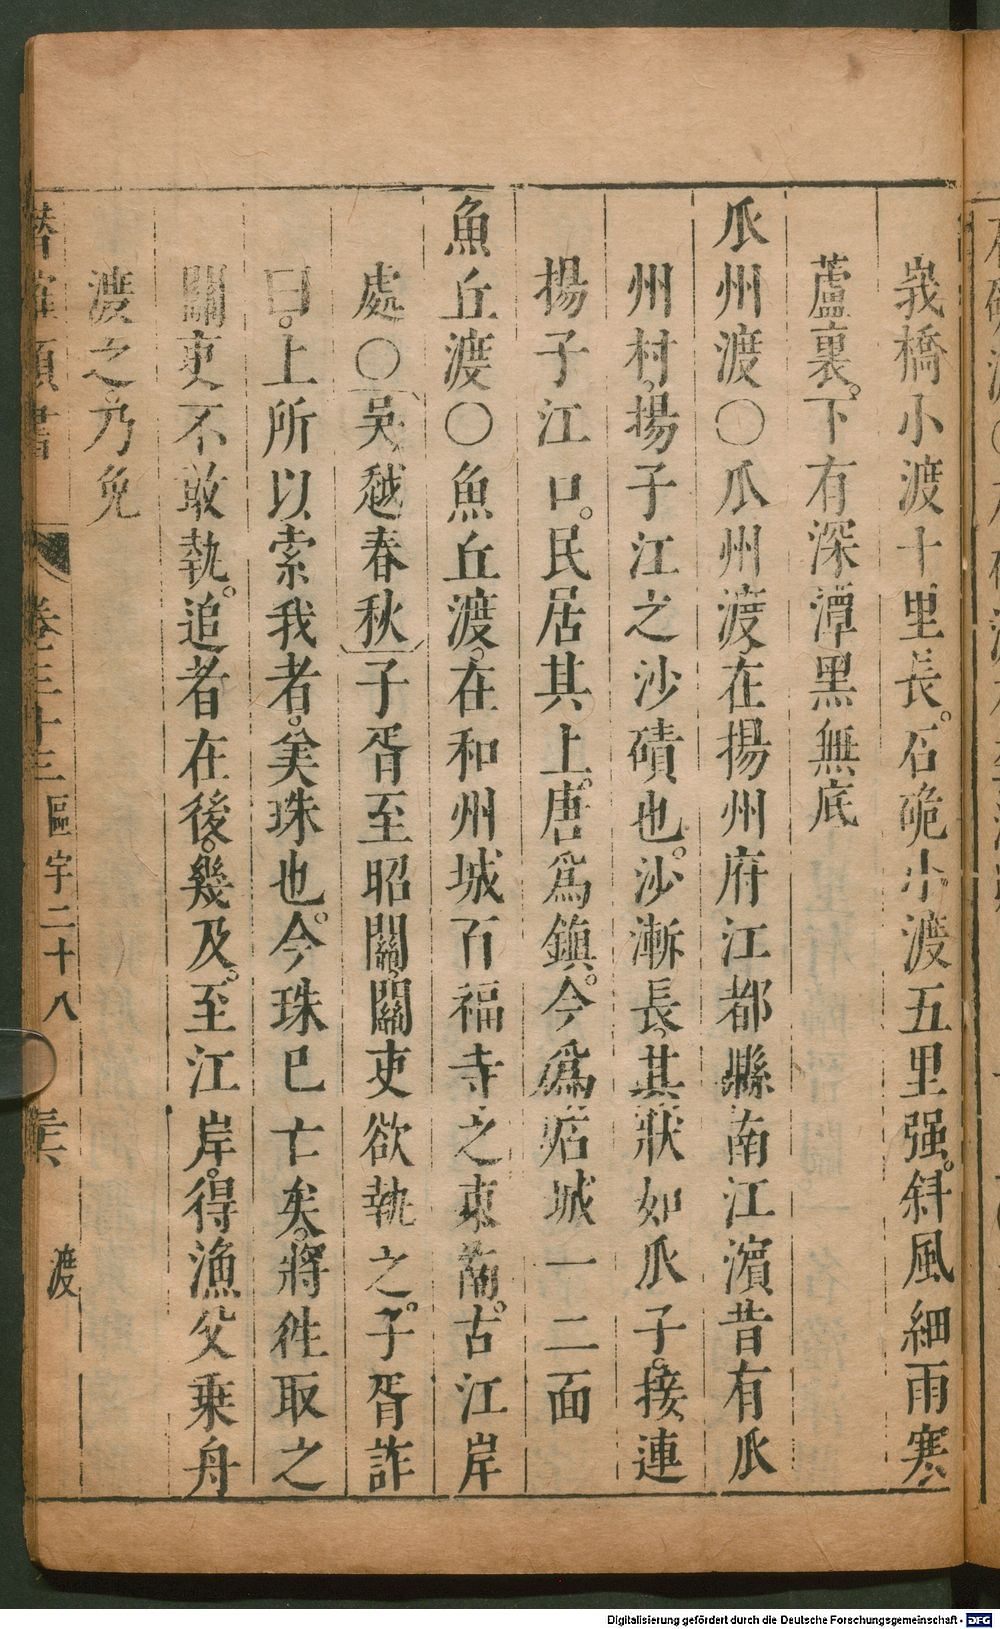 峩橋小渡十里長。石硊小渡五里强。斜風細雨寒
蘆裏。下有深潭黑無底
瓜州渡○瓜州渡。在揚州府江都縣南江濵昔有瓜
州村。揚子江之沙磧也。沙漸長。其狀如瓜子。接連
揚子江口。民居其上。唐爲鎮。今爲𤶊城一二面
魚丘渡○魚丘渡。在和州城百福寺之東南。古江岸
處○吳越春秋子胥至昭關。關吏欲執之。子胥詐
曰。上所以索我者。美珠也。今珠已亡矣。將徃取之
關吏不敢執。追者在後。幾及。至江岸。得漁父乗舟
渡之。乃免
潛確類書
卷三十三
區宇二十八
渡
Digitalisierung gefördert durch die Deutsche Forschungsgemeinschaft - DFG